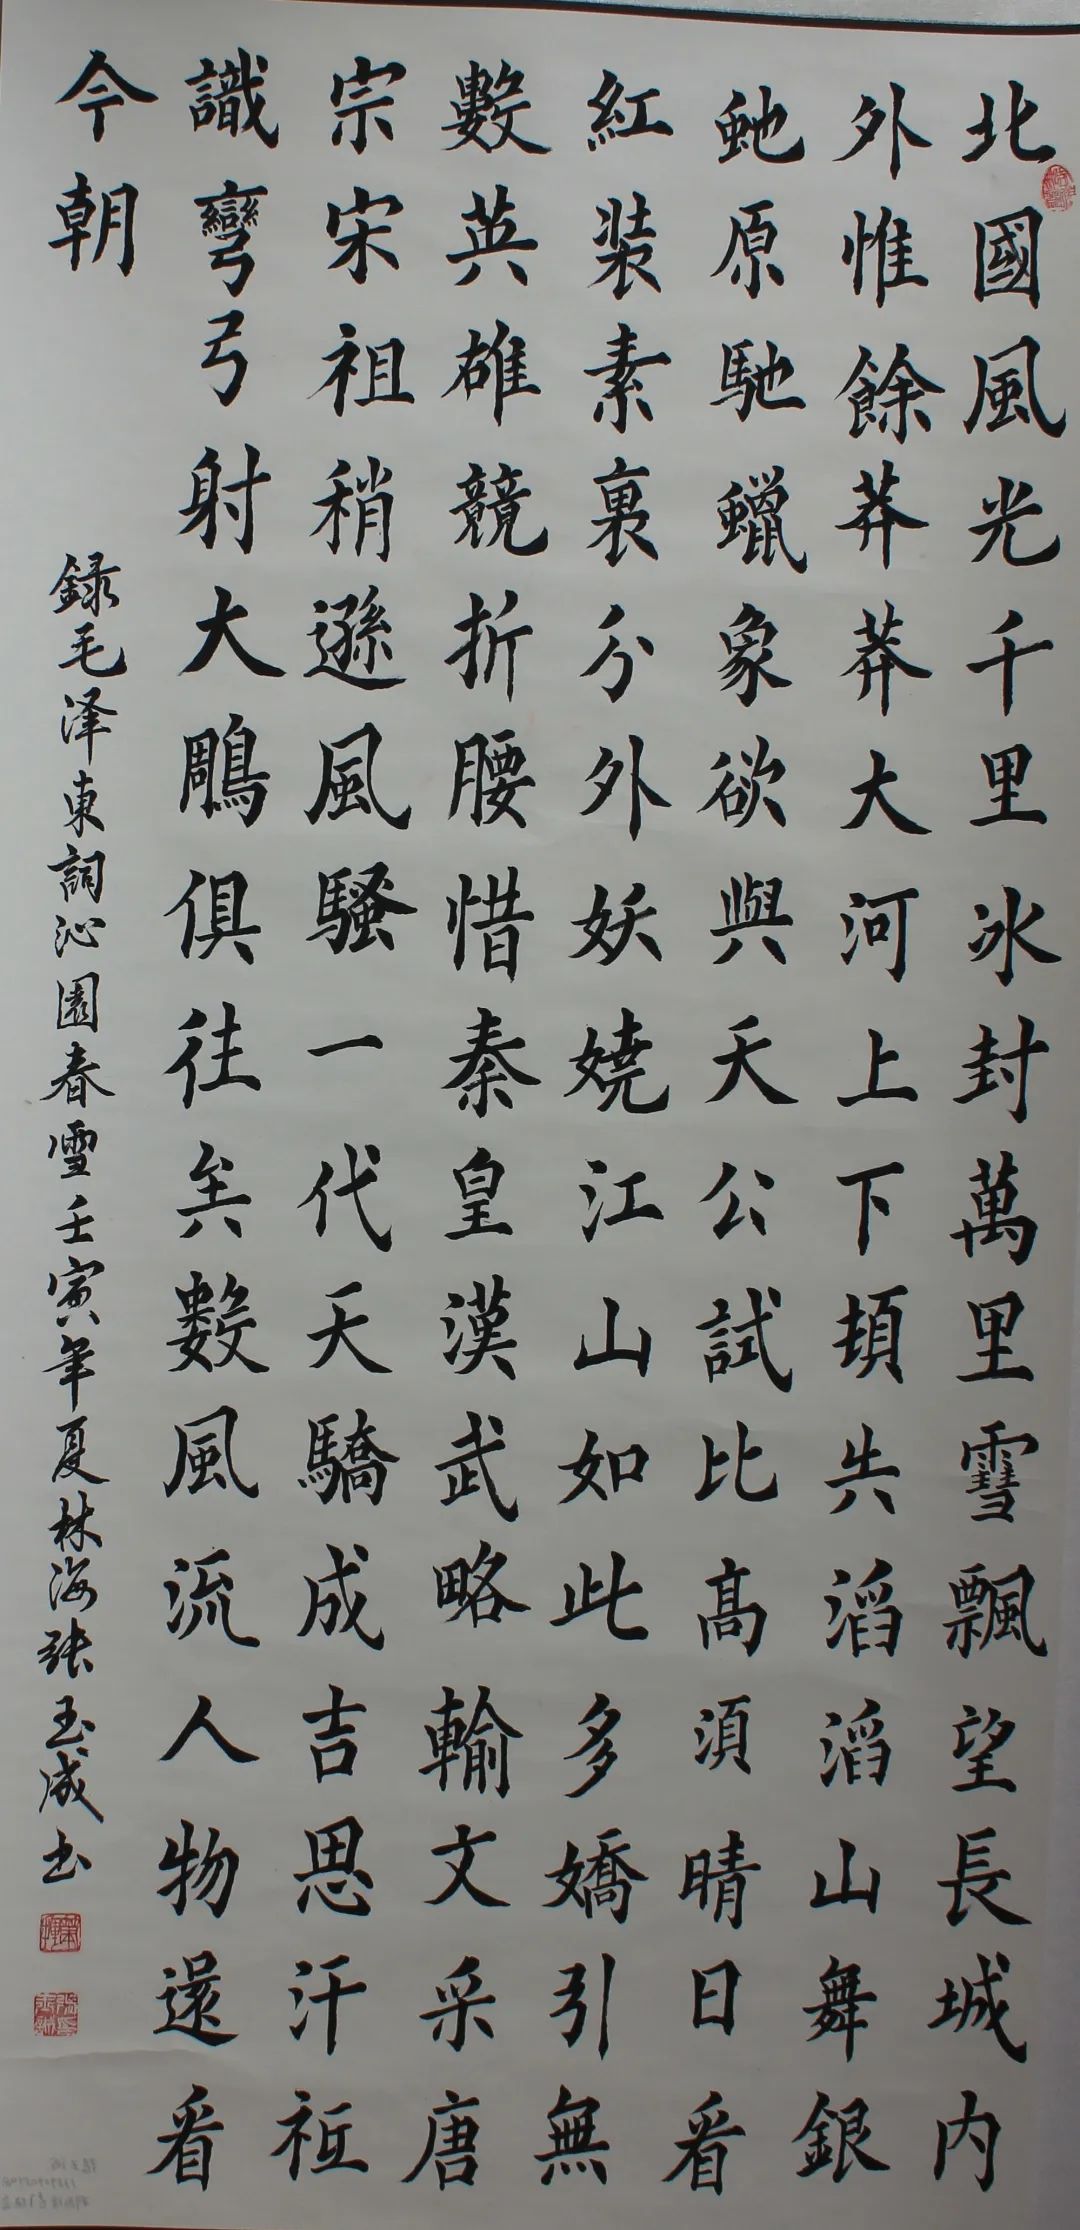 北國風光千里冰封萬里雪飄望長城内
外惟餘莽莽大河上下頓失滔滔山舞銀
虵原馳蠟象欲與天公試比高須晴日看
紅装素裹分外妖嬈江山如此多嬌引無
數英雄競折腰惜秦皇漢武略輸文采唐
宗宋祖稍遜風騷一代天驕成吉思汗祗
識彎弓射大鵰俱往矣數風流人物還看
今朝
録毛泽東詞沁園春雪壬寅年夏林海张玉成书